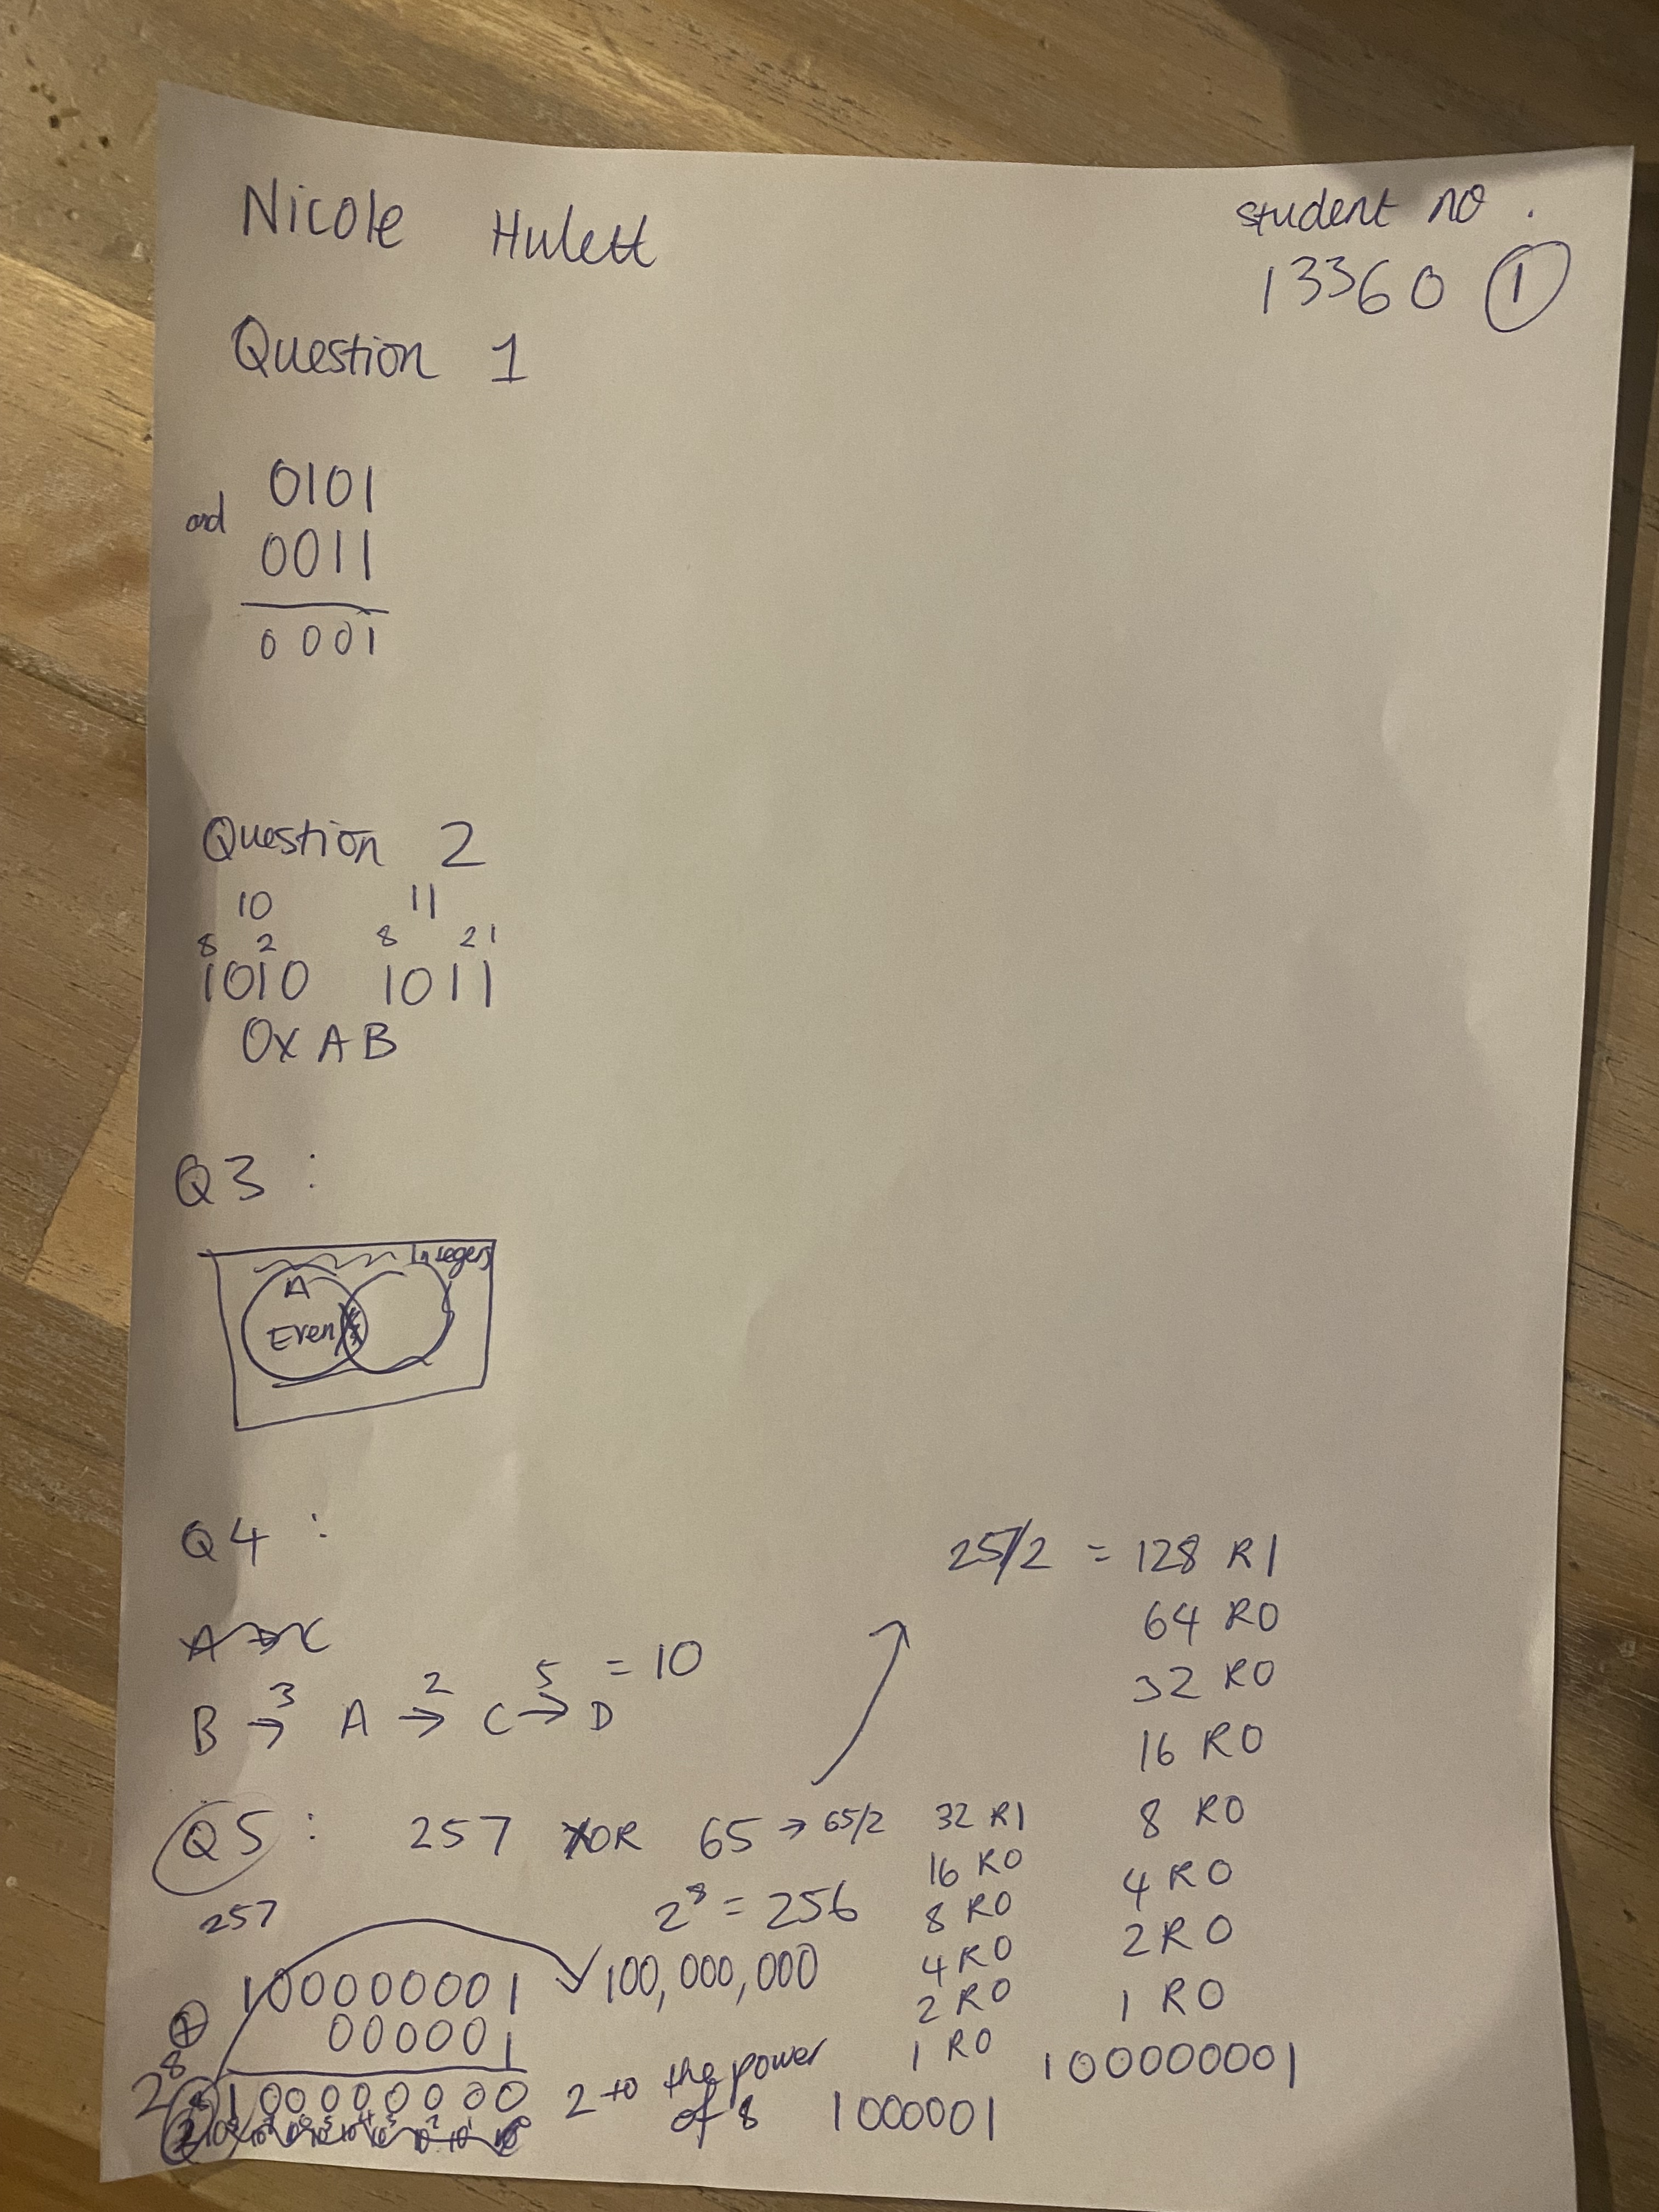 Nicole Hulett
student no.
13360 1
Question 1
0101
and
0011
0001
Question 2
10 11
8 2 8 2 1
1010 1011
0x AB
Q3 :
Integers
A
Even
Q4 :
A → C
3 2 5 = 10
B → A → C → D
Q5 : 257 XOR 65 → 65/2 32 R1
16 R0
8 R0
4 R0
2 R0
1 R0
1000001
257/2 = 128 R1
64 R0
32 R0
16 R0
8 R0
4 R0
2 R0
1 R0
100000001
2⁸ = 256
257
100000001 100,000,000
⊕ 000001
2⁸ 100000000 2 to the power
of 8